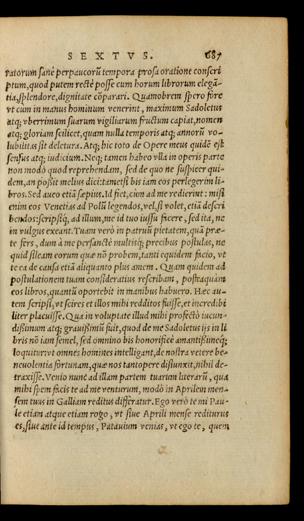 SEXTVS. 687
ratorum sanè perpaucorũ tempora prosa oratione conscri
ptum, quod putem rectè posse cum horum librorum elegã-
tia, splendore, dignitate cõparari. Quamobrem spero fore
vt cum in manus hominum venerint, maximum Sadoletus
atq; vberrimum suarum vigiliarum fructum capiat, nomen
atq; gloriam scilicet, quam nulla temporis atq; annorũ vo-
lubilitas sit deletura. Atq; hic toto de Opere meus quidẽ est
sensus atq; iudicium. Neq; tamen habeo vlla in operis parte
non modò quod reprehendam, sed de quo ne suspicer qui-
dem, an possit melius dici: tametsi bis iam eos perlegerim li-
bros. Sed aueo etiã sæpius. Id fiet, cùm ad me redierint: misi
enim eos Venetias ad Polũ legendos, vel, si volet, etiã descri
bendos: scripsiq́; ad illum, me id tuo iussu facere, sed ita, ne
in vulgus exeant. Tuam verò in patruũ pietatem, quã præ-
te fers, dum à me persanctè multisq́; precibus postulas, ne
quid sileam eorum quæ nõ probem, tanti equidem facio, vt
te ea de causa etiã aliquanto plus amem. Quam quidem ad
postulationem tuam cõsideratius rescribam, posteaquàm
eos libros, quantũ oportebit in manibus habuero. Hæc au-
tem scripsi, vt scires et illos mihi redditos fuisse, et incredibi
liter placuisse. Qua in voluptate illud mihi profectò iucun-
dissimum atq; grauissimũ fuit, quod de me Sadoletus ijs in li
bris nõ iam semel, sed omnino bis honorificè amantissimeq́;
loquitur: vt omnes homines intelligant, de nostra vetere be-
neuolentia fortunam, quæ nos tantopere disiunxit, nihil de-
traxisse. Venio nunc ad illam partem tuarum literarũ, qua
mihi spem facis te ad me venturum, modò in Aprilem men-
sem tuus in Galliam reditus differatur. Ego verò te mi Pau-
le etiam atque etiam rogo, vt siue Aprili mense rediturus
es, siue ante id tempus, Patauium venias, vt ego te, quem